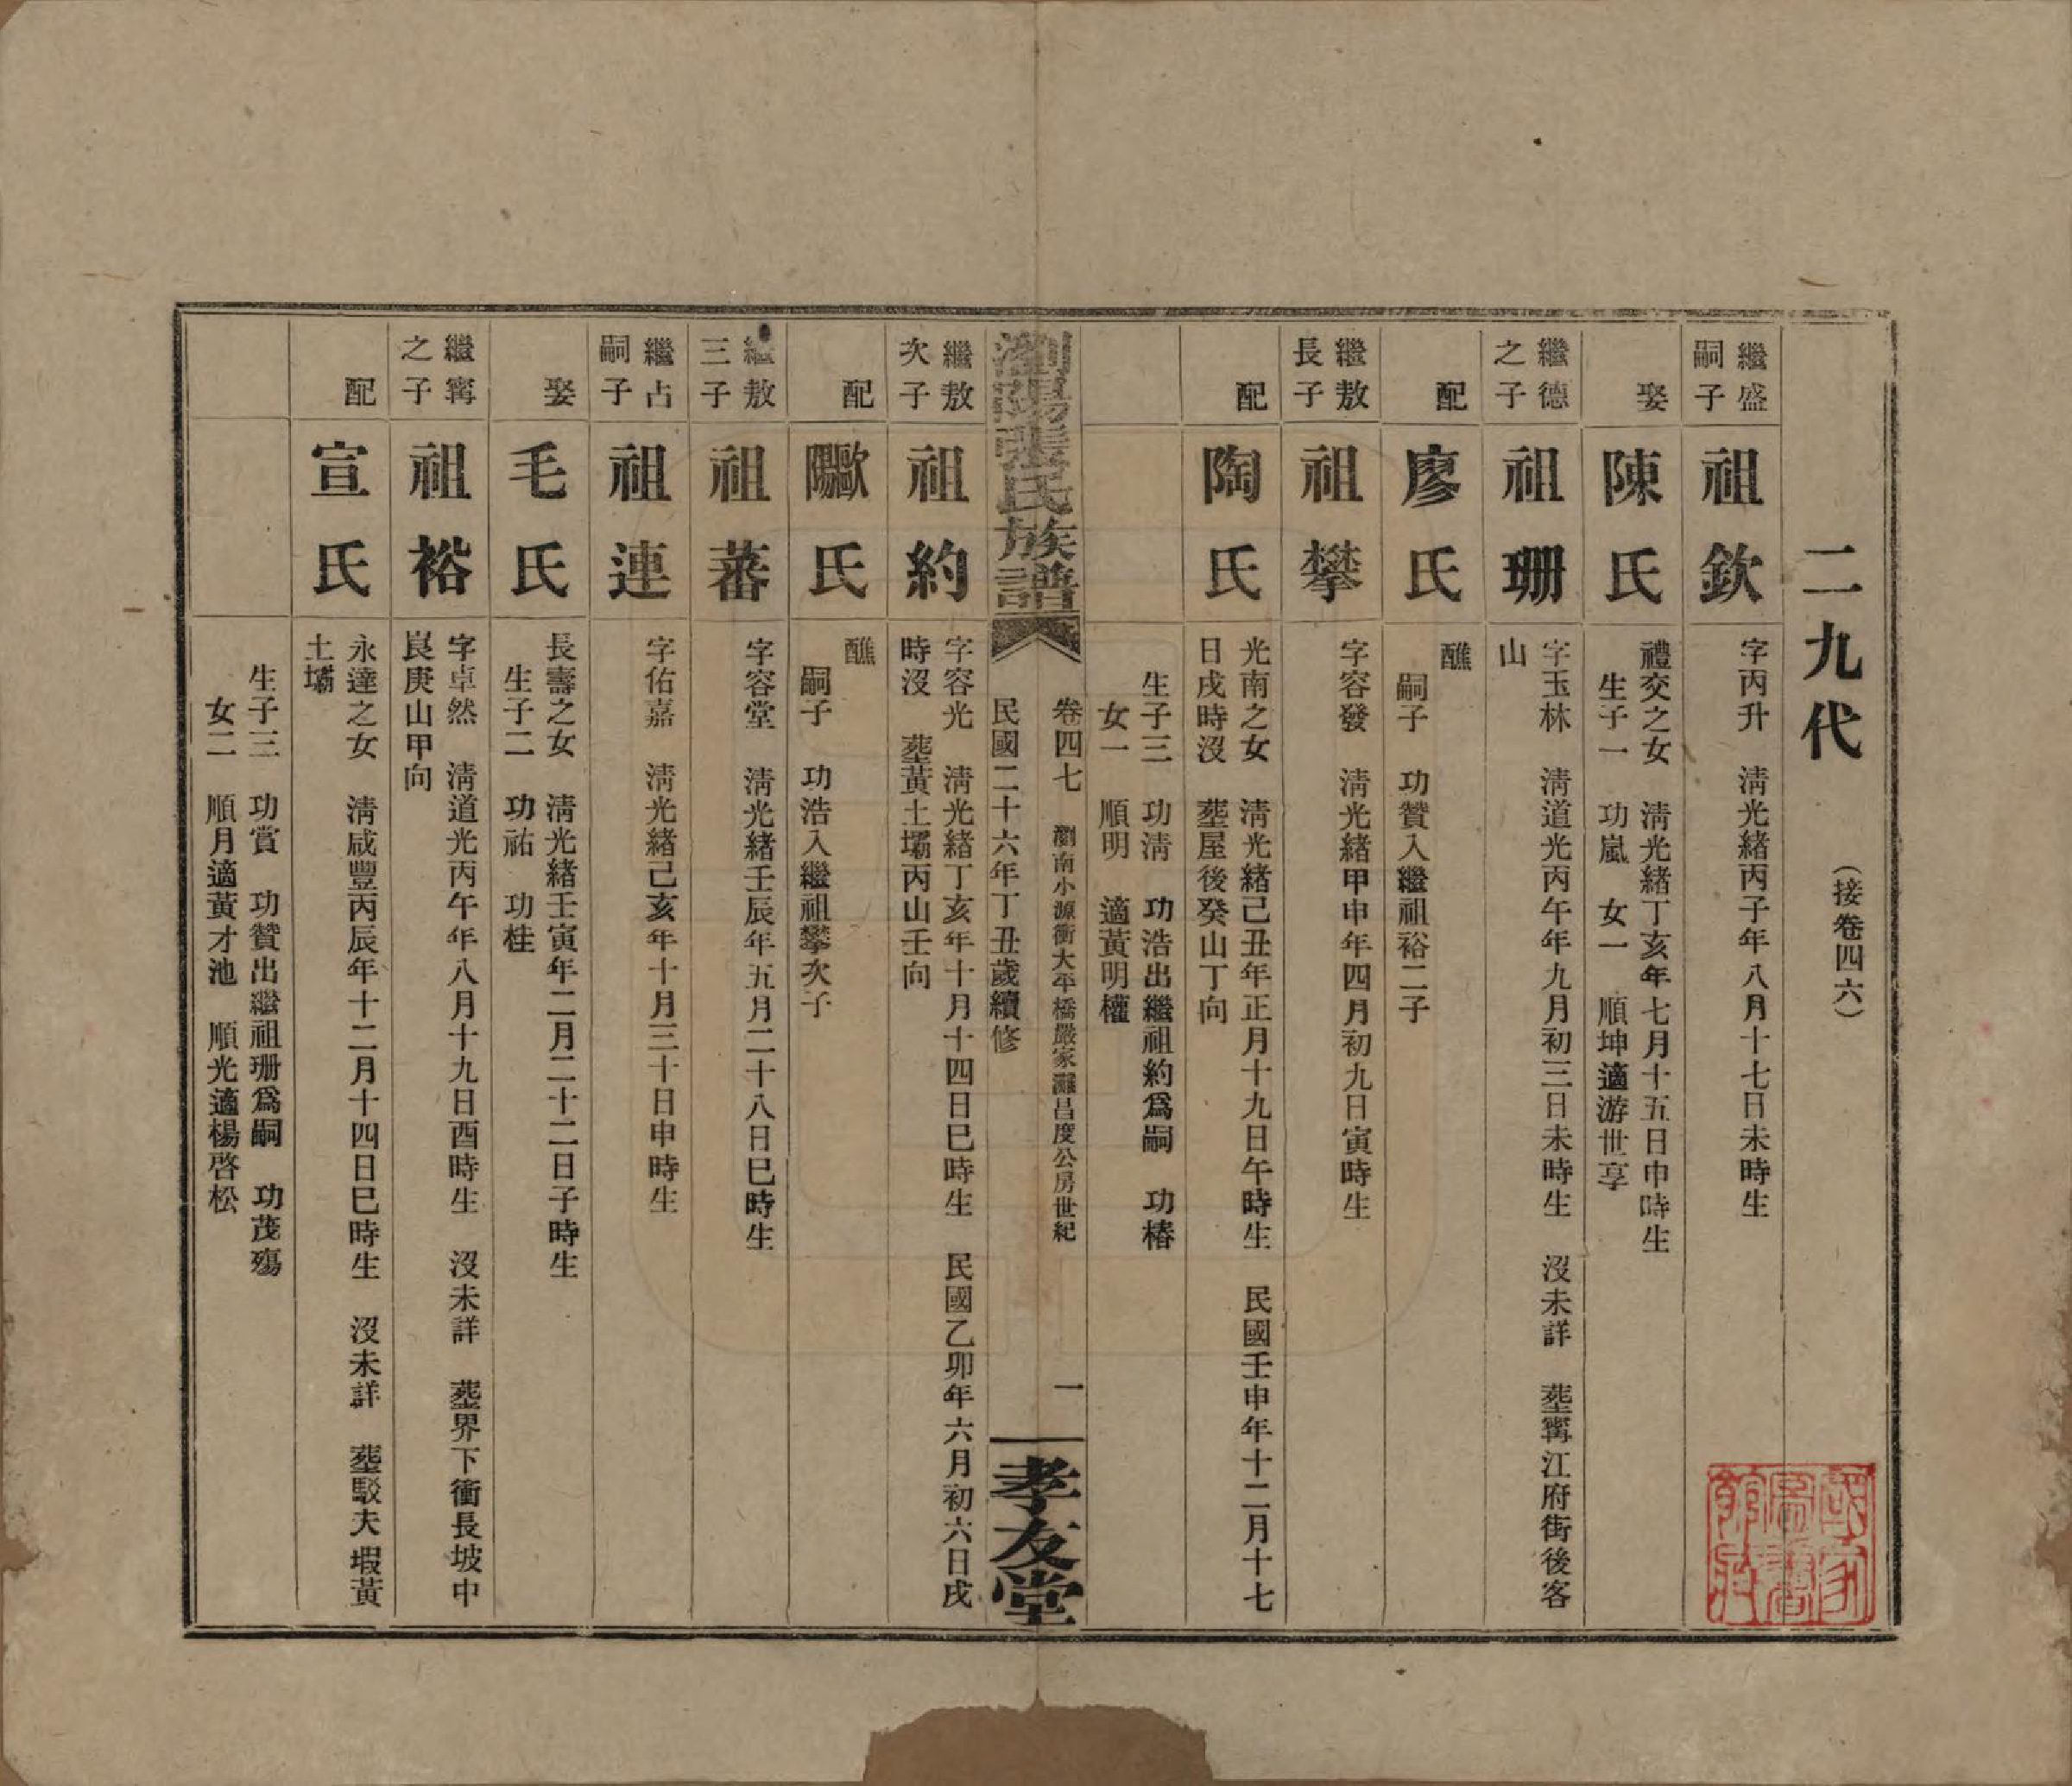 二九代　（接卷四六）
繼盛
嗣子
祖欽
字丙升　淸光緒丙子年八月十七日未時生
娶
陳氏
禮交之女　淸光緒丁亥年七月十五日申時生
生子一　功嵐　女一　順坤適游世享
繼德
之子
祖珊
字玉林　淸道光丙午年九月初三日未時生　沒未詳　塟寗江府街後客
山
配
廖氏
醮
嗣子　功贊入繼祖裕二子
繼敖
長子
祖攀
字容發　淸光緒甲申年四月初九日寅時生
配
陶氏
光南之女　淸光緒己丑年正月十九日午時生　民國壬申年十二月十七
日戌時沒　塟屋後癸山丁向
生子三　功淸　功浩出繼祖約爲嗣　功椿
女一　順明　適黃明權
瀏陽張氏族譜
卷四七　瀏南小源衝大平橋嚴家灘昌度公房世紀
民國二十六年丁丑歲續修
一
孝友堂
繼敖
次子
祖約
字容光　淸光緒丁亥年十月十四日巳時生　民國乙卯年六月初六日戌
時沒　塟黃土壩丙山壬向
配
歐陽氏
醮
嗣子　功浩入繼祖攀次子
繼敖
三子
祖蕃
字容堂　淸光緒壬辰年五月二十八日巳時生
繼占
嗣子
祖連
字佑嘉　淸光緒己亥年十月三十日申時生
娶
毛氏
長壽之女　淸光緒壬寅年二月二十二日子時生
生子二　功祐　功桂
繼寗
之子
祖裕
字卓然　淸道光丙午年八月十九日酉時生　沒未詳　塟界下衝長坡中
艮庚山甲向
配
宣氏
永達之女　淸咸豐丙辰年十二月十四日巳時生　沒未詳　塟駁夫塅黃
土壩
生子三　功賞　功贊出繼祖珊爲嗣　功茂殤
女二　順月適黃才池　順光適楊啓松